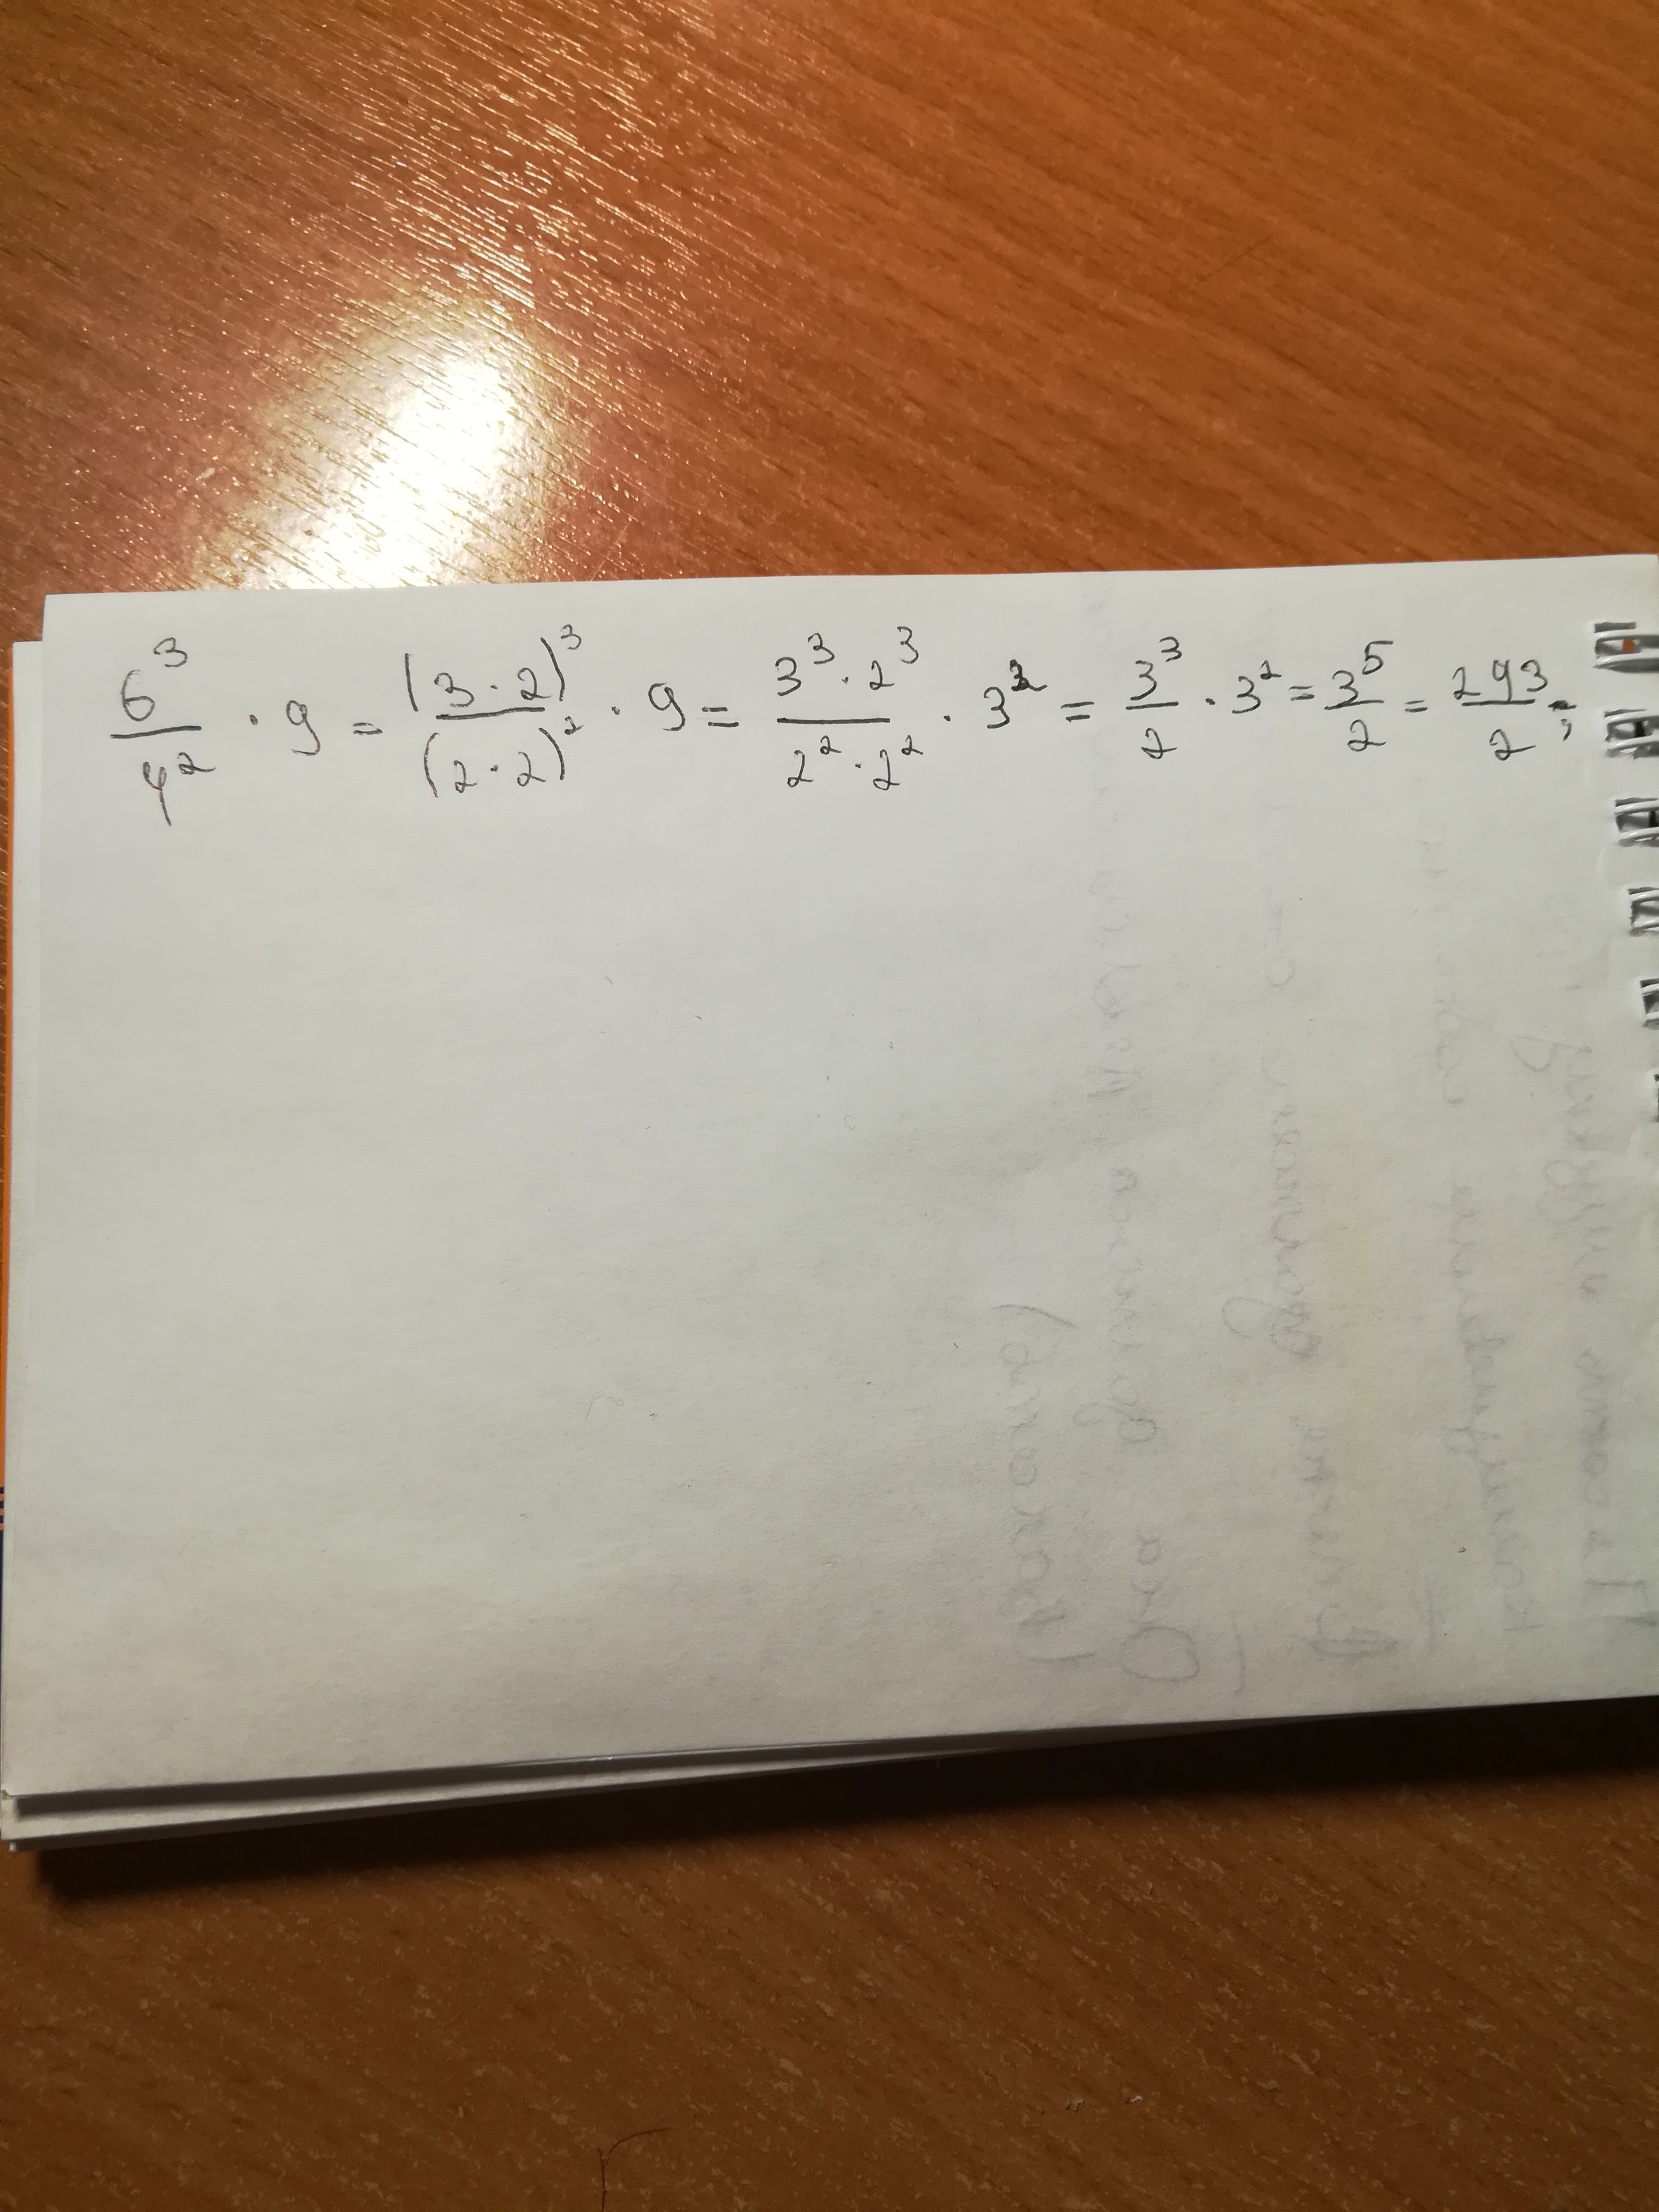 6³/4² · 9 = (3·2)³/(2·2)² · 9 = 3³·2³/2²·2² · 3² = 3³/2 · 3² = 3⁵/2 = 293/2;